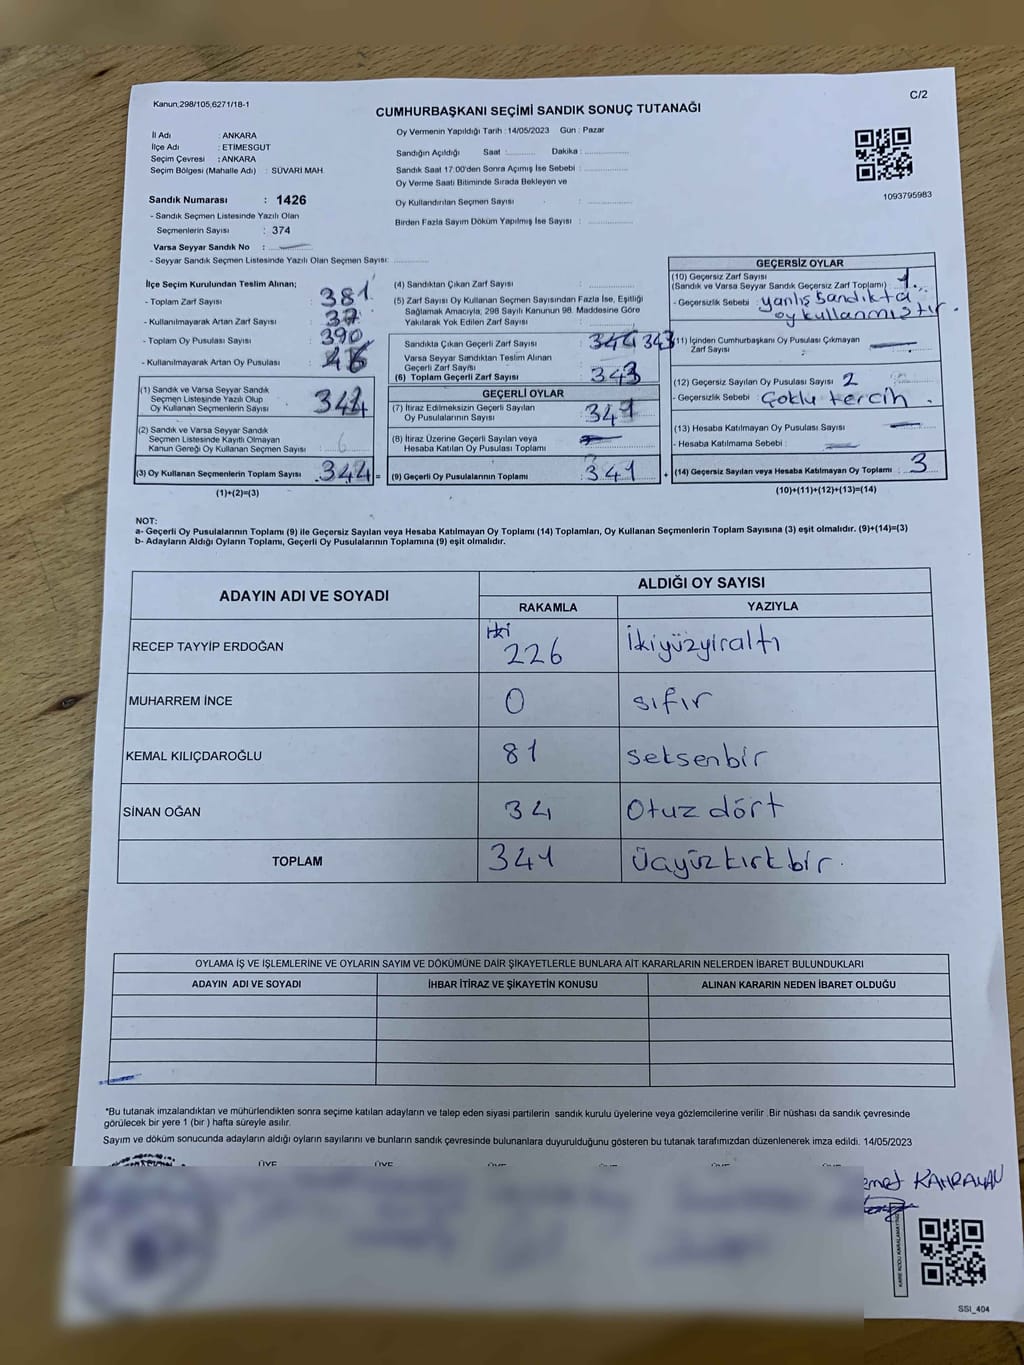 Kanun,298/105,6271/18-1
C/2
CUMHURBAŞKANI SEÇİMİ SANDIK SONUÇ TUTANAĞI
İl Adı : ANKARA
İlçe Adı : ETİMESGUT
Seçim Çevresi : ANKARA
Seçim Bölgesi (Mahalle Adı) : SÜVARİ MAH.
Sandık Numarası : 1426
- Sandık Seçmen Listesinde Yazılı Olan
Seçmenlerin Sayısı : 374
Varsa Seyyar Sandık No :
- Seyyar Sandık Seçmen Listesinde Yazılı Olan Seçmen Sayısı:
Oy Vermenin Yapıldığı Tarih : 14/05/2023 Gün : Pazar
Sandığın Açıldığı Saat : Dakika :
Sandık Saat 17.00'den Sonra Açımış İse Sebebi :
Oy Verme Saati Bitiminde Sırada Bekleyen ve
Oy Kullandırılan Seçmen Sayısı :
Birden Fazla Sayım Döküm Yapılmış İse Sayısı :
1093795983
İlçe Seçim Kurulundan Teslim Alınan;
- Toplam Zarf Sayısı : 381
- Kullanılmayarak Artan Zarf Sayısı : 37
- Toplam Oy Pusulası Sayısı : 390
- Kullanılmayarak Artan Oy Pusulası : 46
(1) Sandık ve Varsa Seyyar Sandık
Seçmen Listesinde Yazılı Olup
Oy Kullanan Seçmenlerin Sayısı : 344
(2) Sandık ve Varsa Seyyar Sandık
Seçmen Listesinde Kayıtlı Olmayan
Kanun Gereği Oy Kullanan Seçmen Sayısı :
(3) Oy Kullanan Seçmenlerin Toplam Sayısı : 344 =
(1)+(2)=(3)
(4) Sandıktan Çıkan Zarf Sayısı :
(5) Zarf Sayısı Oy Kullanan Seçmen Sayısından Fazla İse, Eşitliği
Sağlamak Amacıyla; 298 Sayılı Kanunun 98. Maddesine Göre
Yakılarak Yok Edilen Zarf Sayısı :
Sandıkta Çıkan Geçerli Zarf Sayısı : 344 343
Varsa Seyyar Sandıktan Teslim Alınan
Geçerli Zarf Sayısı :
(6) Toplam Geçerli Zarf Sayısı : 343
GEÇERLİ OYLAR
(7) İtiraz Edilmeksizin Geçerli Sayılan
Oy Pusulalarının Sayısı : 341
(8) İtiraz Üzerine Geçerli Sayılan veya
Hesaba Katılan Oy Pusulası Toplamı :
(9) Geçerli Oy Pusulalarının Toplamı : 341 +
GEÇERSİZ OYLAR
(10) Geçersiz Zarf Sayısı
(Sandık ve Varsa Seyyar Sandık Geçersiz Zarf Toplamı) : 1
- Geçersizlik Sebebi : yanlış Sandıkta
oy kullanmıştır.
(11) İçinden Cumhurbaşkanı Oy Pusulası Çıkmayan
Zarf Sayısı :
(12) Geçersiz Sayılan Oy Pusulası Sayısı : 2
- Geçersizlik Sebebi : Çoklu tercih.
(13) Hesaba Katılmayan Oy Pusulası Sayısı :
- Hesaba Katılmama Sebebi :
(14) Geçersiz Sayılan veya Hesaba Katılmayan Oy Toplamı : 3
(10)+(11)+(12)+(13)=(14)
NOT:
a- Geçerli Oy Pusulalarının Toplamı (9) ile Geçersiz Sayılan veya Hesaba Katılmayan Oy Toplamı (14) Toplamları, Oy Kullanan Seçmenlerin Toplam Sayısına (3) eşit olmalıdır. (9)+(14)=(3)
b- Adayların Aldığı Oyların Toplamı, Geçerli Oy Pusulalarının Toplamına (9) eşit olmalıdır.
ADAYIN ADI VE SOYADI
ALDIĞI OY SAYISI
RAKAMLA YAZIYLA
RECEP TAYYİP ERDOĞAN 226 İkiyüzyiraltı
MUHARREM İNCE 0 sıfır
KEMAL KILIÇDAROĞLU 81 Seksenbir
SİNAN OĞAN 34 Otuz dört
TOPLAM 341 Üçyüzkırkbir.
OYLAMA İŞ VE İŞLEMLERİNE VE OYLARIN SAYIM VE DÖKÜMÜNE DAİR ŞİKAYETLERLE BUNLARA AİT KARARLARIN NELERDEN İBARET BULUNDUKLARI
ADAYIN ADI VE SOYADI İHBAR İTİRAZ VE ŞİKAYETİN KONUSU ALINAN KARARIN NEDEN İBARET OLDUĞU
*Bu tutanak imzalandıktan ve mühürlendikten sonra seçime katılan adayların ve talep eden siyasi partilerin sandık kurulu üyelerine veya gözlemcilerine verilir .Bir nüshası da sandık çevresinde
görülecek bir yere 1 (bir ) hafta süreyle asılır.
Sayım ve döküm sonucunda adayların aldığı oyların sayılarını ve bunların sandık çevresinde bulunanlara duyurulduğunu gösteren bu tutanak tarafımızdan düzenlenerek imza edildi. 14/05/2023
ÜYE ÜYE ÜYE ÜYE ÜYE ÜYE
KAHRAMAN
SSI_404